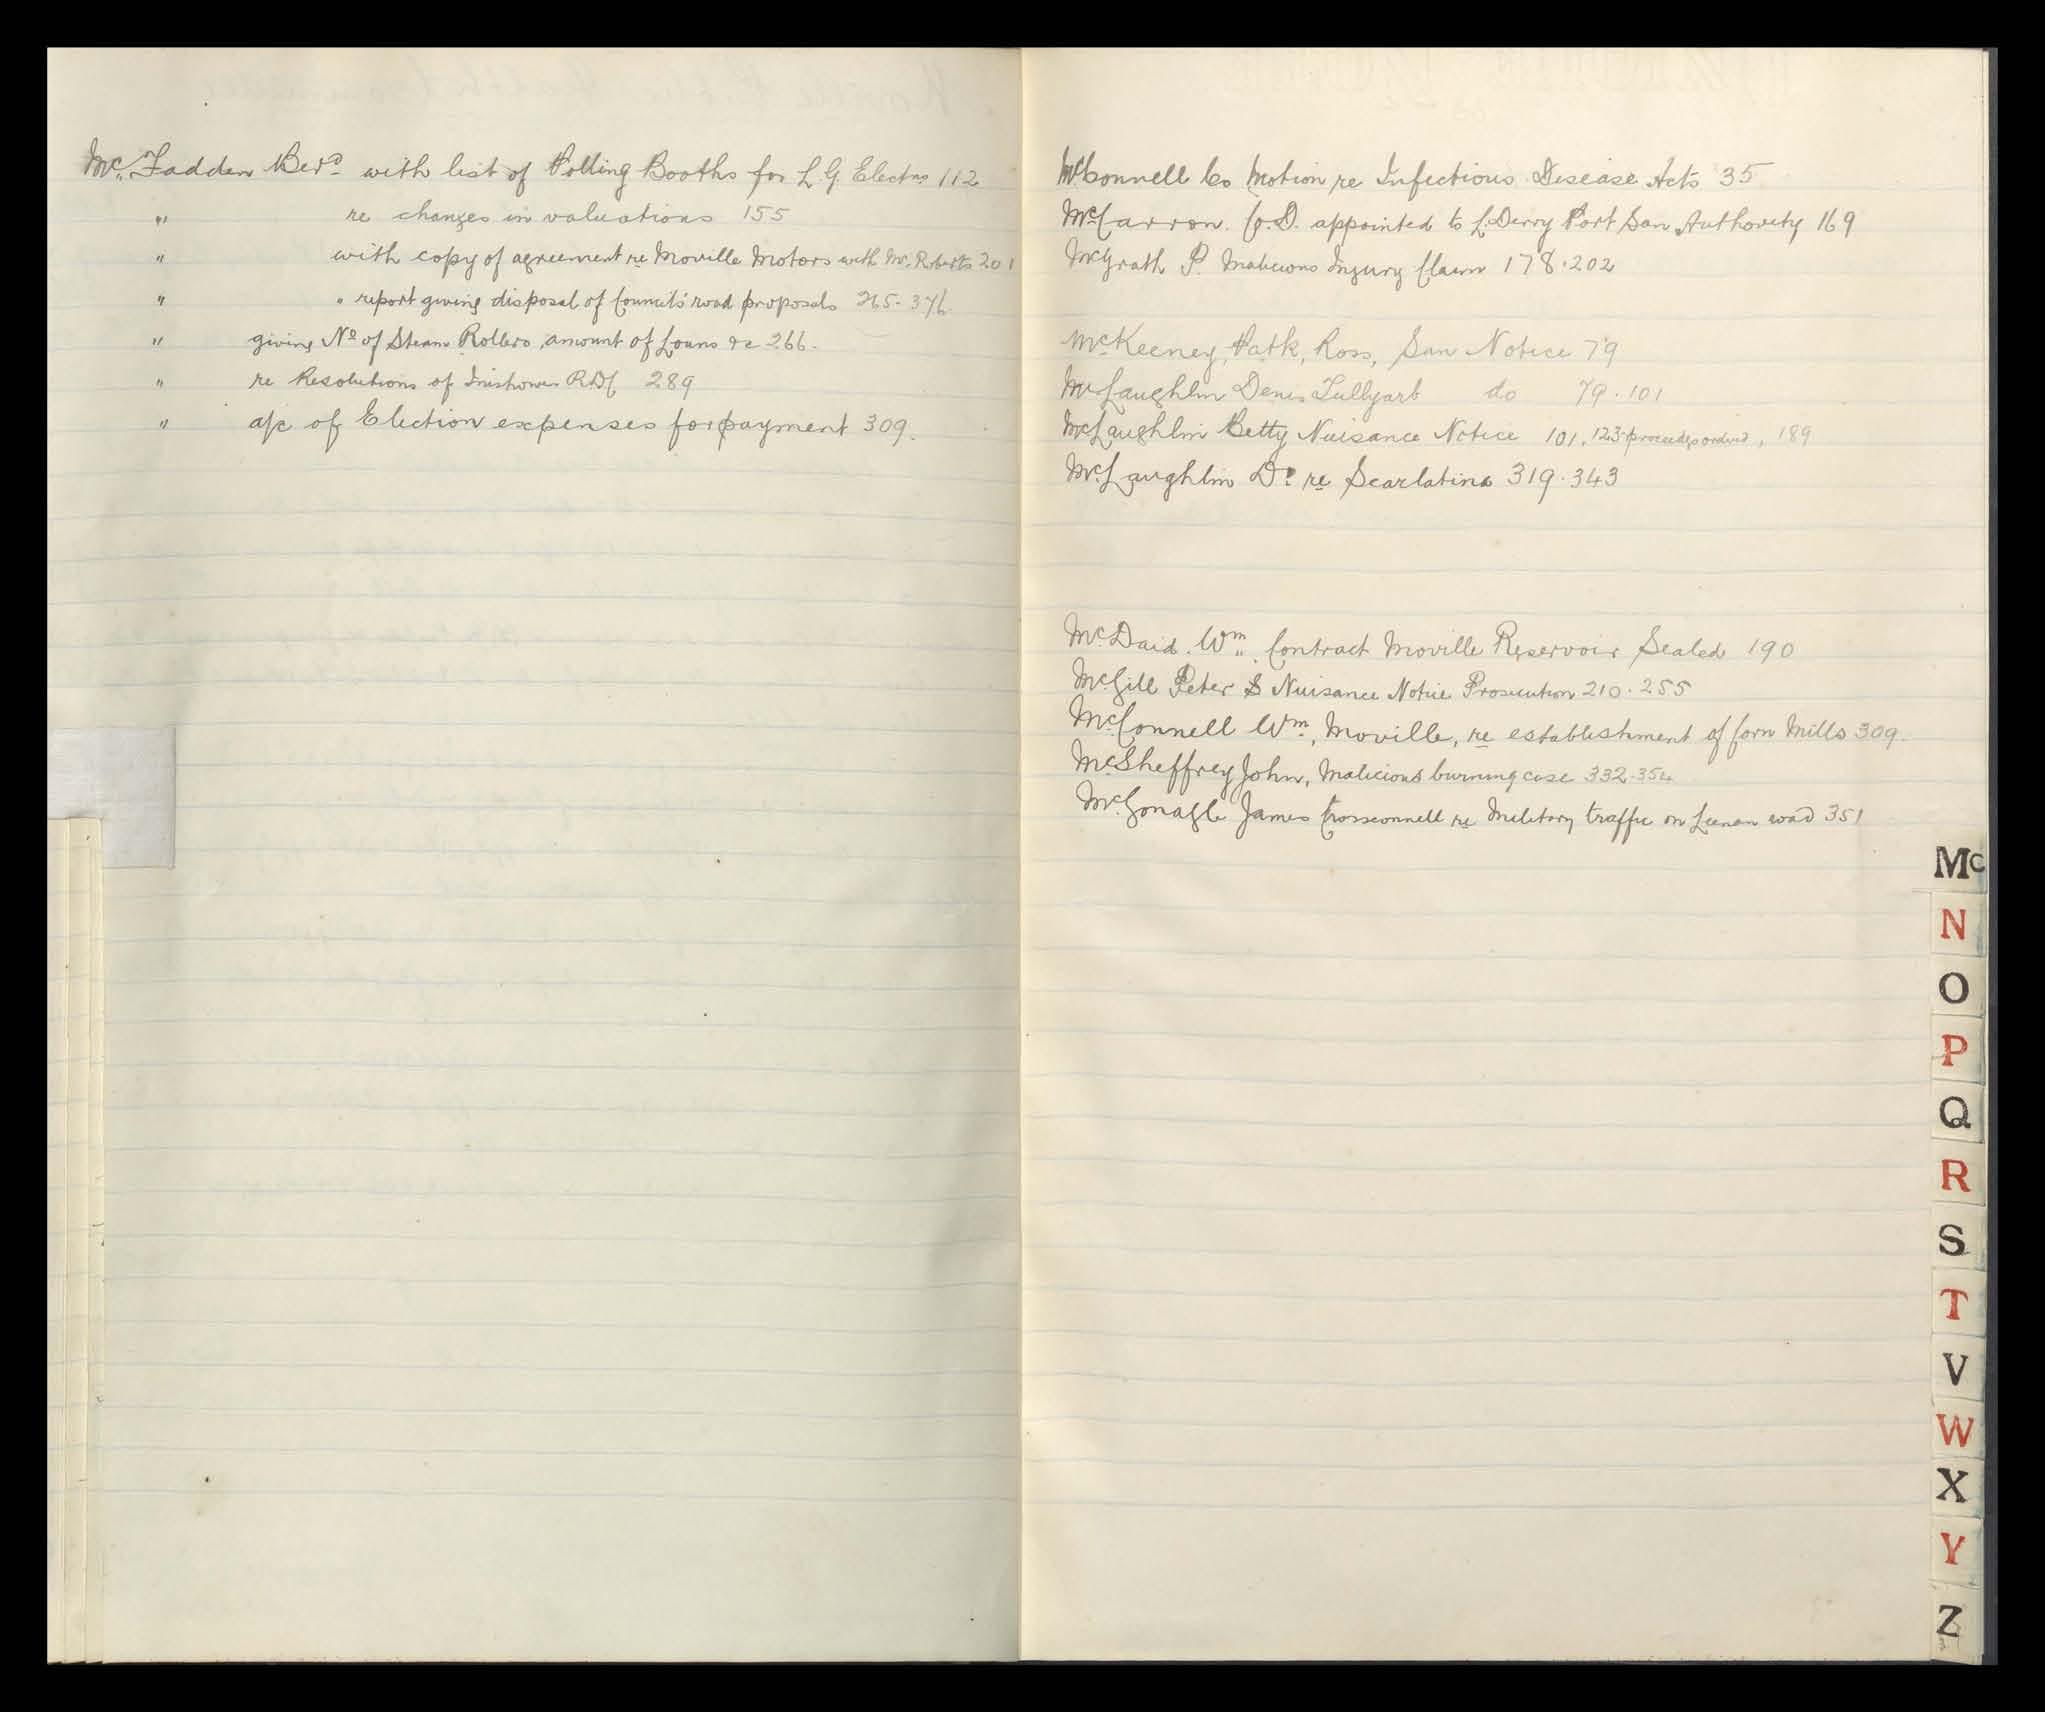 Mc Fadden Berd with list of Polling Booths for L. G. Electns 112
" re changes in valuations 155
" with copy of agreement re Moville Motors with Mr. Roberts 201
" " report giving disposal of Council's road proposals 265-376
" giving No of Steam Rollers, amount of Loans &c 266.
" re Resolutions of Inishowen RDC 289
" a/c of Election expenses for payment 309.
McConnell Co Motion re Infectious Disease Acts 35
McCarron. Co. D. appointed to L.Derry Port San Authority 169
McGrath P. Malicious Injury Claim 178.202
McKeeney, Patk, Ross, San Notice 79
McLaughlin Denis Tullyarb do 79.101
McLaughlin Betty Nuisance Notice 101, 123 proceedgs ordered, 189
McLaughlin Dr re Scarlatina 319.343
McDaid. Wm. Contract Moville Reservoir Sealed 190
McGill Peter S Nuisance Notice Prosecution 210.255
McConnell Wm, Moville, re establishment of Corn Mills 309.
McSheffrey John, Malicious burning case 332-354
McGonagle James Crossconnell re Military traffic on Leenan road 351
Mc
N
O
P
Q
R
S
T
V
W
X
Y
Z